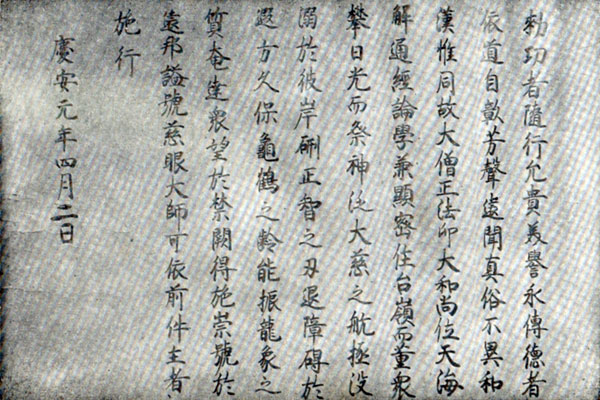 勅功者隨行允貴美譽永傳德者
依道自彰芳聲遠聞真俗不異和
漢惟同故大僧正法印大和尚位天海
解通經論學兼顯密住台嶺而董衆
攀日光而祭神泛大慈之航極没
溺於彼岸硎正智之刃退障碍於
遐方久保龜鶴之齡能振龍象之
質奄達衆望於禁闕得施崇號於
遠邦謚號慈眼大師可依前件主者
施行
慶安元年四月二日